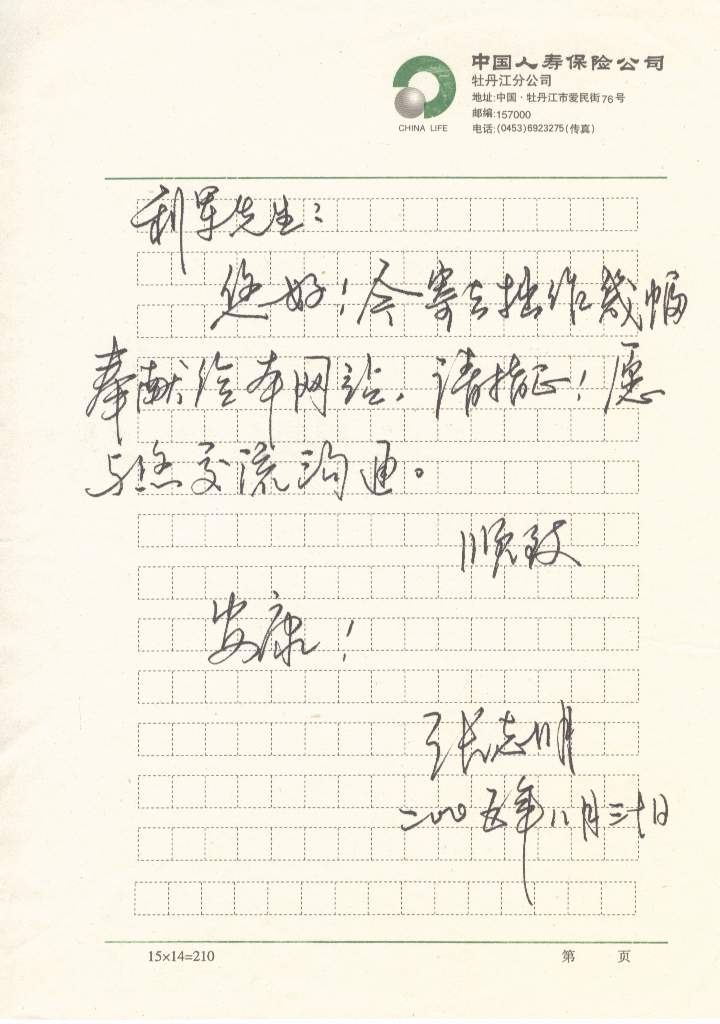 中国人寿保险公司
牡丹江分公司
地址:中国·牡丹江市爱民街76号
邮编:157000
电话:(0453)6923275(传真)
CHINA LIFE
利军先生:
您好!今寄去拙作幾幅
奉献给本网站,请指正!愿
与您交流沟通。
顺致
安康!
张志明
二〇〇五年八月三十日
15×14=210
第 页